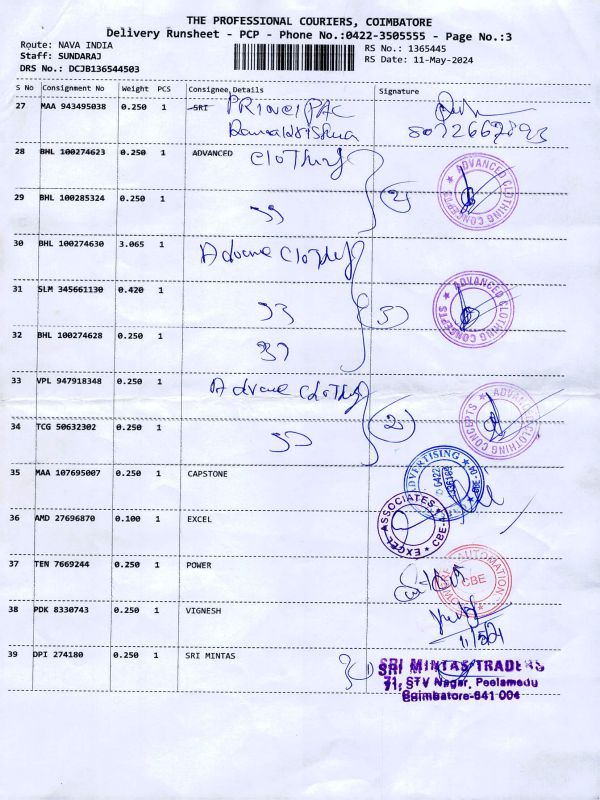 THE PROFESSIONAL COURIERS, COIMBATORE
Delivery Runsheet - PCP - Phone No.:0422-3505555 - Page No.:3
Route: NAVA INDIA
Staff: SUNDARAJ
DRS No.: DCJB136544503
RS No.: 1365445
RS Date: 11-May-2024
S No Consignment No Weight PCS Consignee Details Signature
27 MAA 943495038 0.250 1 SRI PRincipAL
28 BHL 100274623 0.250 1 ADVANCED cloThing
29 BHL 100285324 0.250 1
30 BHL 100274630 3.065 1
31 SLM 345661130 0.420 1
32 BHL 100274628 0.250 1
33 VPL 947918348 0.250 1
34 TCG 50632302 0.250 1
35 MAA 107695007 0.250 1 CAPSTONE
36 AMD 27696870 0.100 1 EXCEL
37 TEN 7669244 0.250 1 POWER
38 PDK 8330743 0.250 1 VIGNESH
39 DPI 274180 0.250 1 SRI MINTAS
ADVANCED CLOTHING CONCEPTS
ADVANCED CLOTHING CONCEPTS
ADVANCED CLOTHING CONCEPTS
ADVERTISING
EXCEL ASSOCIATES CBE-4
AUTOMATION CBE
11/5/24
SRI MINTAS TRADERS
71, STV Nagar, Peelamedu
Coimbatore-641 004